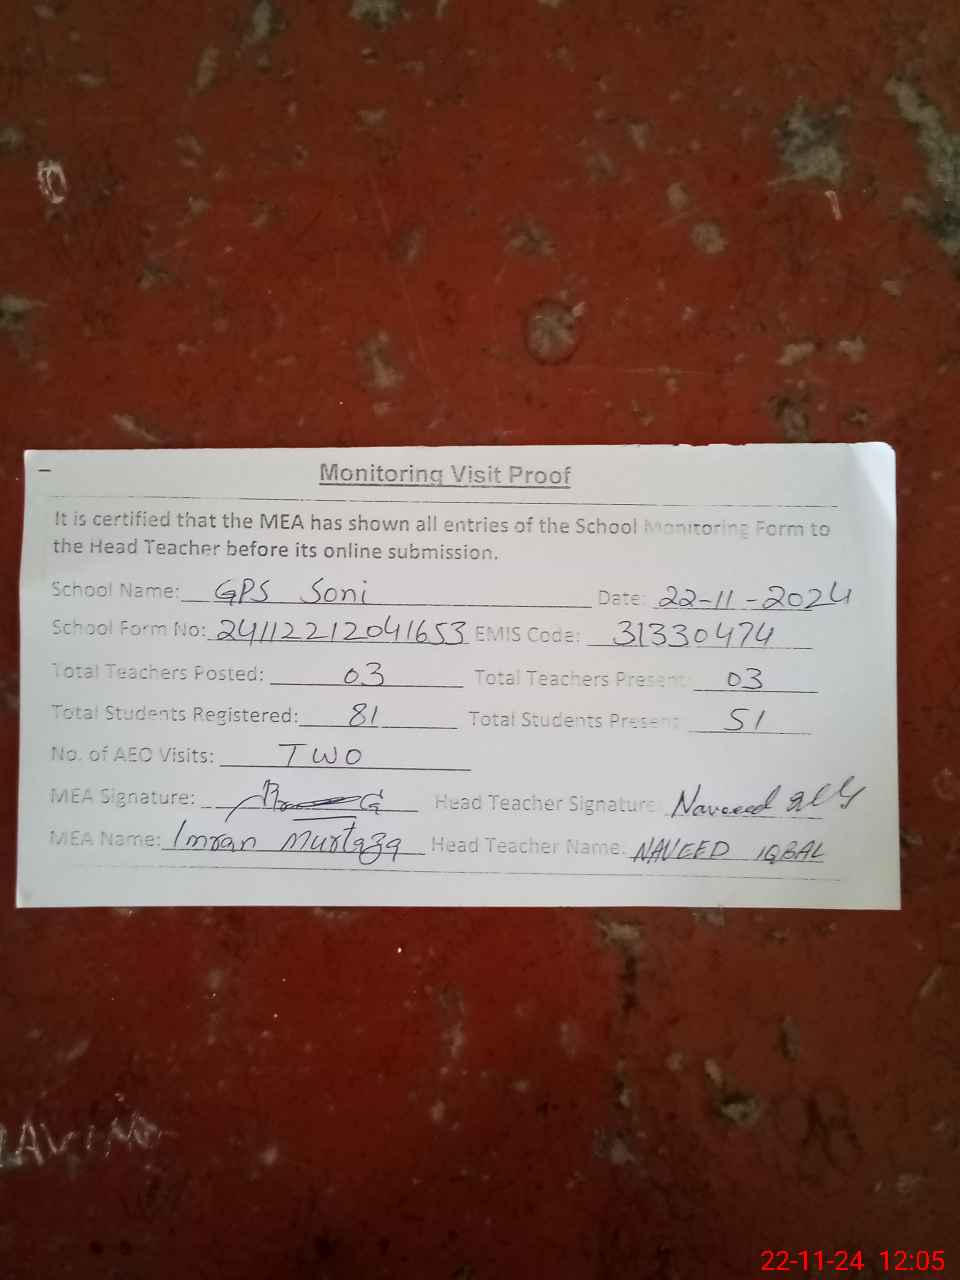 Monitoring Visit Proof
It is certified that the MEA has shown all entries of the School Monitoring Form to
the Head Teacher before its online submission.
School Name: GPS Soni Date: 22-11-2024
School Form No: 24112212041653 EMIS Code: 31330474
Total Teachers Posted: 03 Total Teachers Present: 03
Total Students Registered: 81 Total Students Present: 51
No. of AEO Visits: TWO
MEA Signature: Head Teacher Signature: Naveed
MEA Name: Imran Murtaza Head Teacher Name: NAVEED IQBAL
22-11-24 12:05